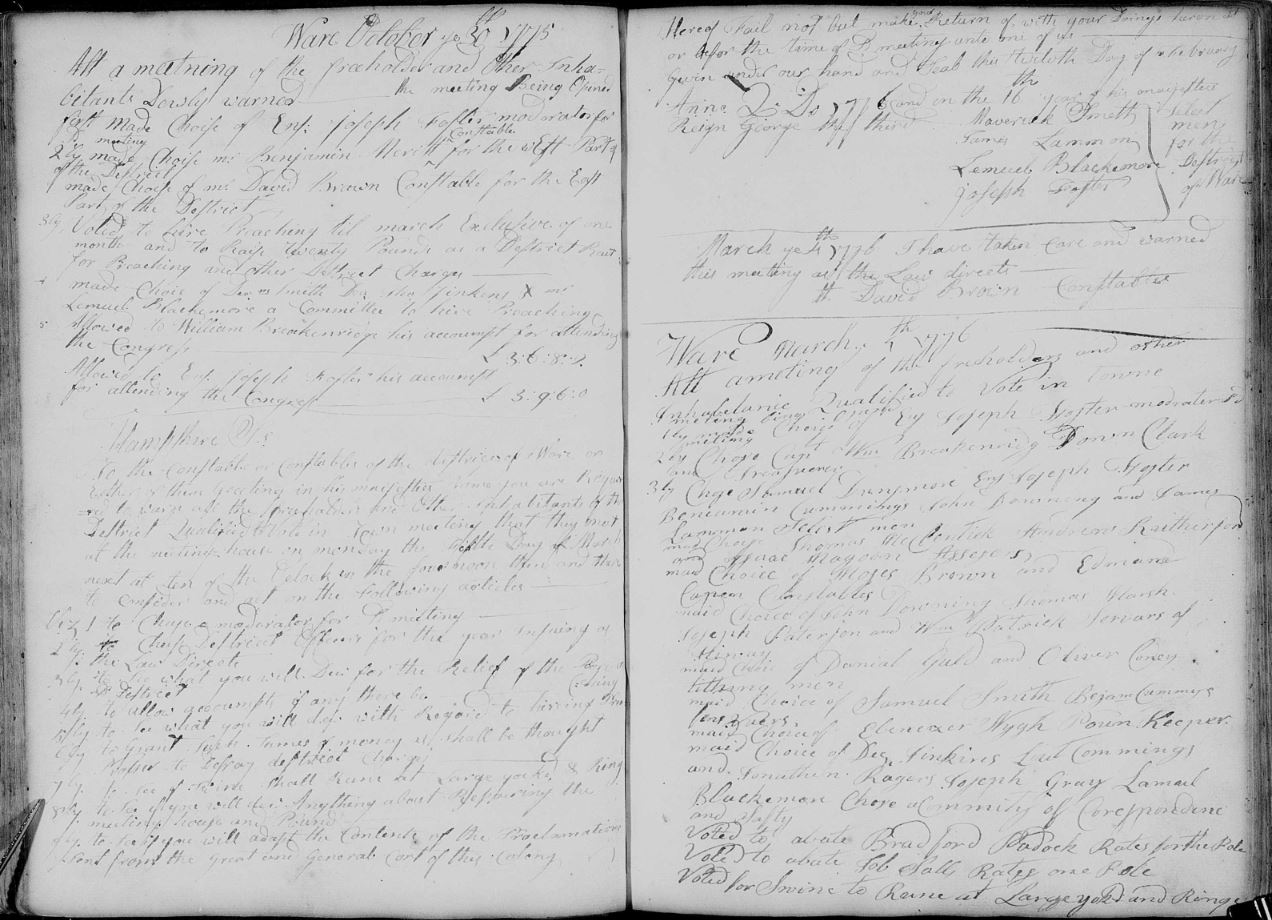 Ware October ye 30th 1775
Att a meatning of the Freeholder and Other Inha-
bitants Dewly warned the meeting Being Opened
fast made Choise of Ens. Joseph Foster moderator for
sd meeting
2ly made Choise mr Benjamin Constable for the west Part of
of the District
made Choise of mr David Brown Constable for the East
Part of the District
3ly Voted to hire Preaching til march Exclusive of one
month and to Rais twenty Pounds as a Destrict Rait
for Preaching and other District Charges
made Choice of Smith Jinkens & mr
Lemuel Blackemore a Committee to hire Preaching
5 Allowed to William Breakenridge his accoumpt for attending
the Congress £ 3:6:8:2
Allowed to Ens. Joseph Foster his accoumpt
for attending the Congress £ 3:9:6:0
Hampshire Ss
To the Constable or Constables of the district of Ware or
either of them Greeting in his majesties name you are Requir
ed to warn all the and Other inhabitants of the
District Qualified to Vote in Town meeting that they meet
at the meeting house on monday the Day of March
next at ten of the Clock in the forenoon then and there
to consider and act on the following articles
viz 1 to Chuse a moderator for sd meeting
2ly to Chuse District officers for the year insuing as
the Law Directs
3ly to see what you will Doe for the Relief of the
sd district
4ly to allow accoumpts if any there be
5ly to see what you will doe with Regard to hirring
6ly to Grant such sumes of money as shall be thought
Proper to Defray destrict Charges
7ly to see if swine shall Rune at Large yoked & Ring
8ly to see if you will doe Anything about Repairing the
meeting house and Pound
9ly to see if you will adapt the Contents of the Proclamation
sent from the Great and General Cort of this Colony
Hereof Fail not but make your Return of with your Doings hereon at
or before the time of sd meeting unto one of us
given under our hand and Seal this Day of February
Anno D: Do 1776 and on the 16th year of his majesties
Reign George the third Maverick Smith
James Lammon
Lemuel Blackemore
Joseph Foster
Select
men
for the
Destrict
of Ware
March ye 4th 1776 I have taken Care and warned
this meeting as the Law directs
David Brown Constable
Ware March ye 4th 1776
Att a meting of the freholders and other
Inhabetance Qualified to Vote in Towne
meting being opned
1ly made Choice of Ens Joseph Foster moderater for sd
meeting
2ly Chose Capt Wm Breakenridg Town Clark
and Treasuerer
3ly Chose Samuel Dunsmore Ens Joseph Foster
Beniamin Cummings John Downing and James
Lammon Select men
maid Choise Thomas McClintick Andrew Rutherford
and Isaac Magoon Assesers
maid Choice of Moses Brown and Edmand
Capen Constables
maid Choice of John Downing Thomas Marsh
Joseph Patterson and Wm Patrick Servars of
Hiway
maid Choice of Danial Guld and Oliver Coney
tithing men
maid Choice of Samuel Smith Bejam Cummigs
fens vuers
maid Choice of Ebenezer Nygh Poun Keeper
maid Choice of Deg Jinkins Lut Commings
and Jonathin Rogers Joseph Gray Lamuel
Blackemon Chose a Cummity of Corespondine
and Safty
Voted to abate Bradford Padock Rates for the Pole
Voted to abate Job Salls Rates one Pole
Voted for Swine to Rune at Large yokd and Ringe